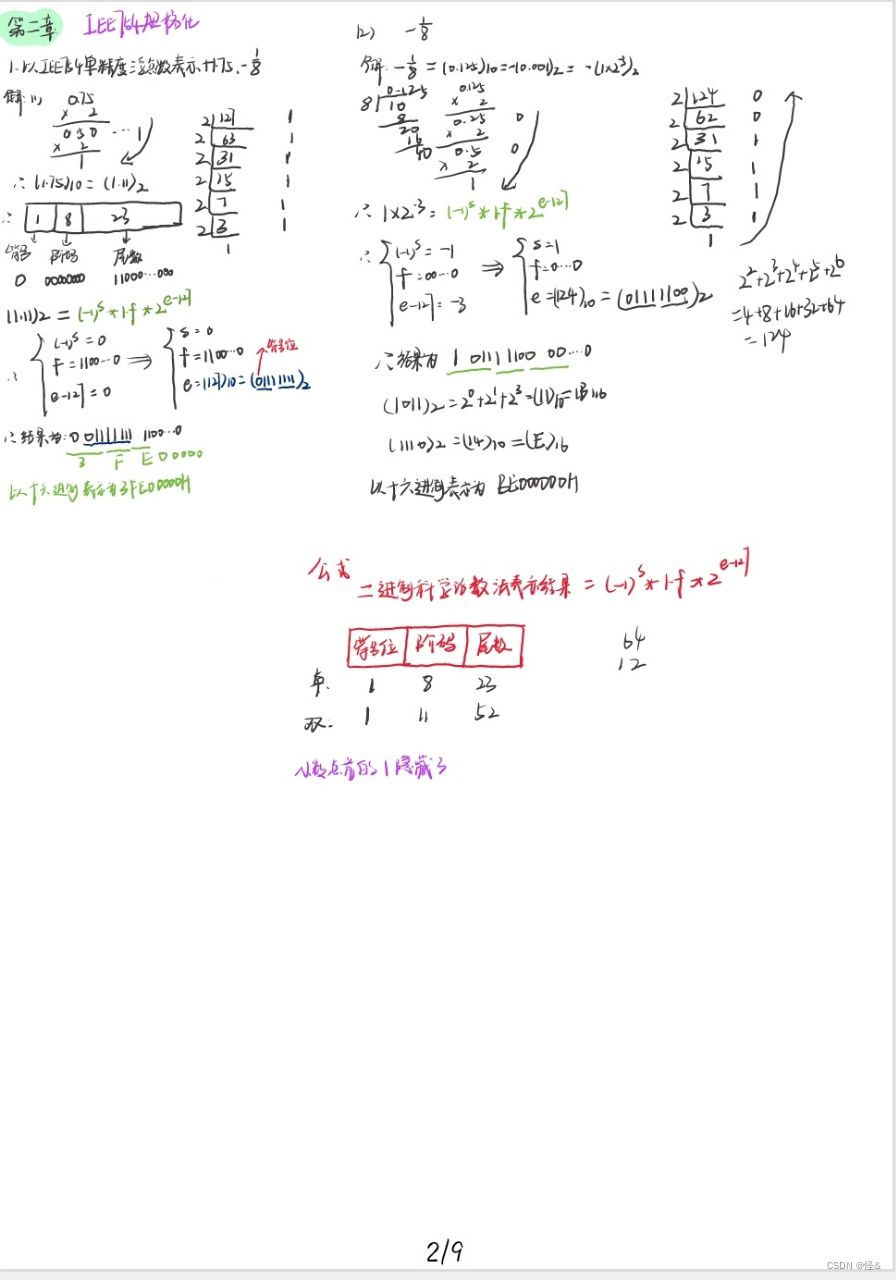 第二章 IEE754规格化
1.以IEE754单精度浮点数表示 +1.75, -1/8
解: (1) 0.75
× 2
0.50 … 1
× 2
1
∴ (1.75)10 = (1.11)2
∴ 1 8 23
符号 阶码 尾数
0 00000000 11000…000
2 127 1
2 63 1
2 31 1
2 15 1
2 7 1
2 3 1
1
(1.11)2 = (-1)^s * 1.f * 2^(e-127)
∴ (-1)^s = 0
f = 1100…0
e-127 = 0
⇒ s = 0
f = 1100…0
e = (127)10 = (01111111)2
符号位
∴ 结果为: 0 01111111 1100…0
3 F E 0 0 0 0 0
以十六进制表示为3FE00000H
(2) -1/8
解: -1/8 = (0.125)10 = -(0.001)2 = -(1×2^3)2
0.125
8 10
8
20
16
40
0.125
× 2
0.25 0
× 2
0.5 0
× 2
1
2 124 0
2 62 0
2 31 1
2 15 1
2 7 1
2 3 1
1
∴ 1×2^-3 = (-1)^s * 1.f * 2^(e-127)
∴ (-1)^s = -1
f = 00…0
e-127 = -3
⇒ s = 1
f = 0…0
e = (124)10 = (01111100)2
2^2+2^3+2^4+2^5+2^6
=4+8+16+32+64
= 124
∴ 结果为 1 01111100 00…0
(1011)2 = 2^0+2^1+2^3 = (11)10 = (B)16
(1110)2 = (14)10 = (E)16
以十六进制表示为 BE000000H
公式
二进制科学计数法表示结果 = (-1)^s * 1.f * 2^(e-127)
符号位 阶码 尾数
单. 1 8 23
双. 1 11 52
64
12
小数点前的1隐藏了
2/9
CSDN @怪&